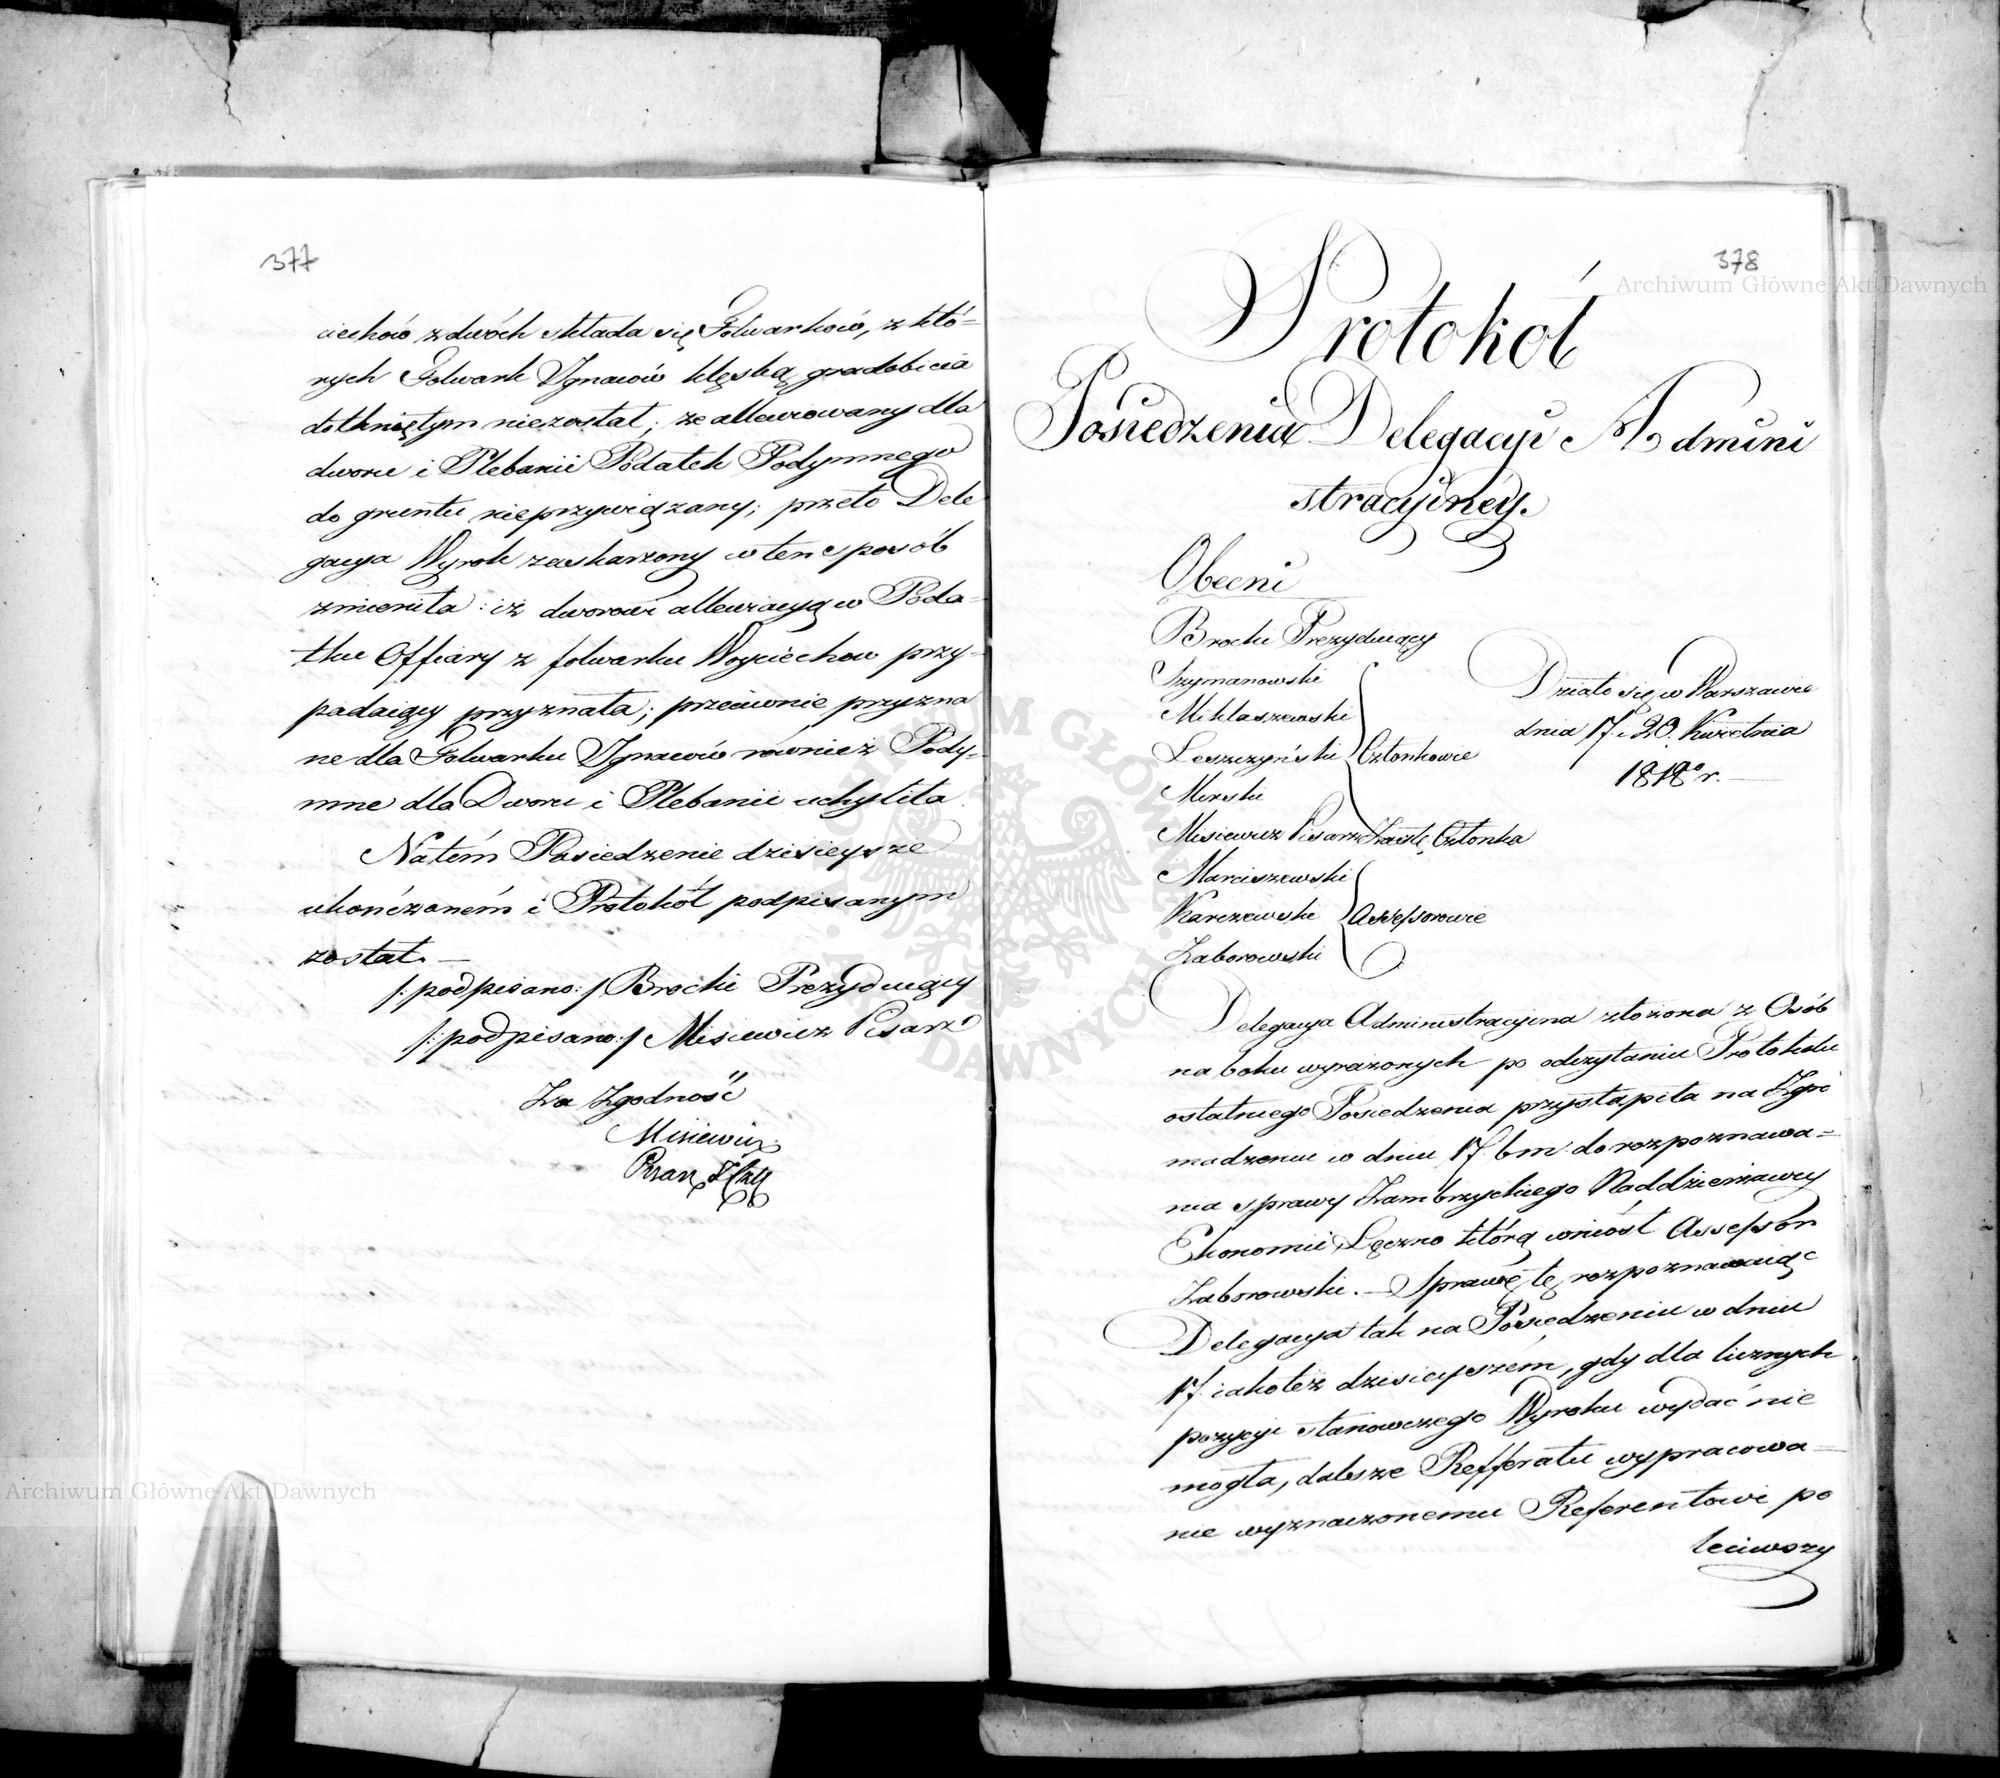 377
ciechów z dwóch składa się Folwarków, z któ=
rych Folwark Ignaców klęską gradobicia
dotkniętym niezostał; że allewiowany dla
dworu i Plebanii Podatek Podymnego
do gruntu nieprzywiązany; przeto Dele
gacya Wyrok zaskarżony w ten sposób
zmieniła: iż dworowi allewiacyą w Poda=
tku Offiary z folwarku Woyciechow przy=
padaiący przyznała; przeciwnie przyzna
ne dla Folwarku Ignaców również Pody=
mne dla Dworu i Plebanii uchyliła.
Natém Posiedzenie dzisieysze
ukończoném i Protokół podpisanym
został. —
/: podpisano: / Brocki Prezyduiący
/: podpisano: / Misiewicz Pisarz
Za Zgodność
Misiewicz
Pisarz
378
Protokół
Posiedzenia Delegacyi Admini
stracyiney.
Obecni
Brocki Prezyduiący
Szymanowski
Miklaszewski
Leszczyński Członkowie
Mirski
Misiewicz Pisarz Zastę. Członka
Marciszewski
Karczewski Assessorowie
Zaborowski
Działo się w Warszawie
dnia 17. i 20. Kwietnia
1818º r. —
Delegacya Administracyina złożona z Osób
na boku wyrażonych po odczytaniu Protokułu
ostatniego Posiedzenia przystąpiła na Zgro
madzeniu w dniu 17. bm: do rozpoznawa=
nia sprawy Zambrzyckiego Naddzierżawcy
Ekonomii Łęczno którą wniósł Assessor
Zaborowski. — Sprawę tę rozpoznawaiąc
Delegacya tak na Posiedzeniu w dniu
17. iakoteż dzisieyszém, gdy dla licznych
pozycyi stanowczego Wyroku wydać nie
mogła, dalsze Refferatu wypracowa=
nie wyznaczonemu Referentowi po
leciwszy
Archiwum Główne Akt Dawnych
Archiwum Główne Akt Dawnych
ARCHIWUM GŁÓWNE AKT DAWNYCH